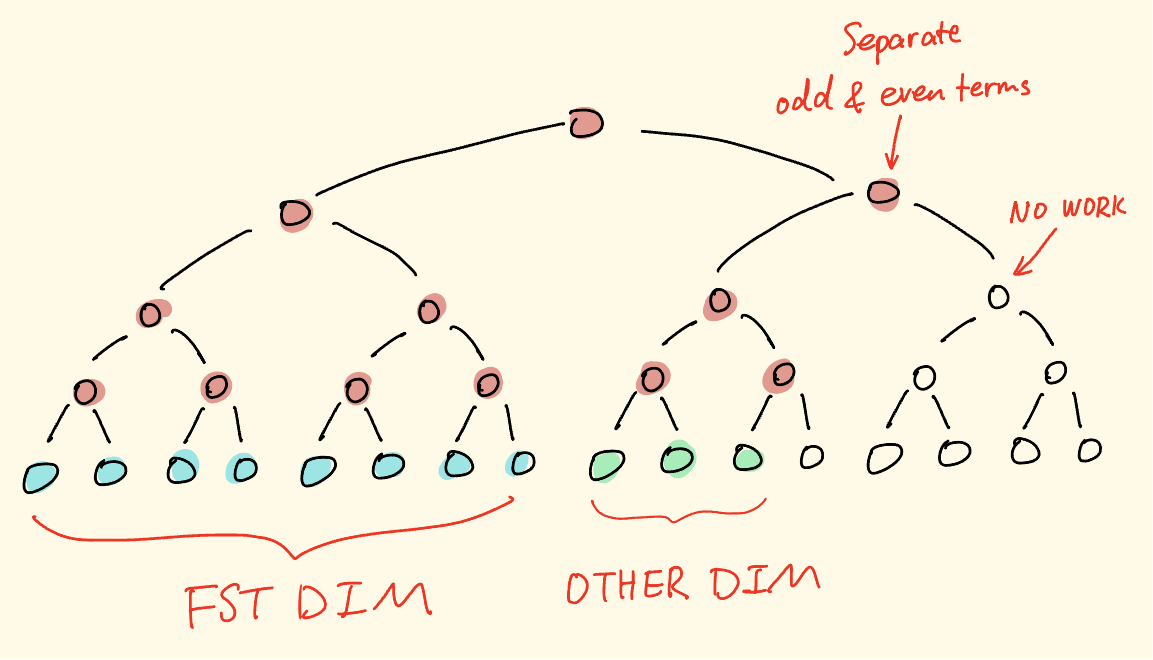 Separate
odd & even terms
NO WORK
FST DIM
OTHER DIM